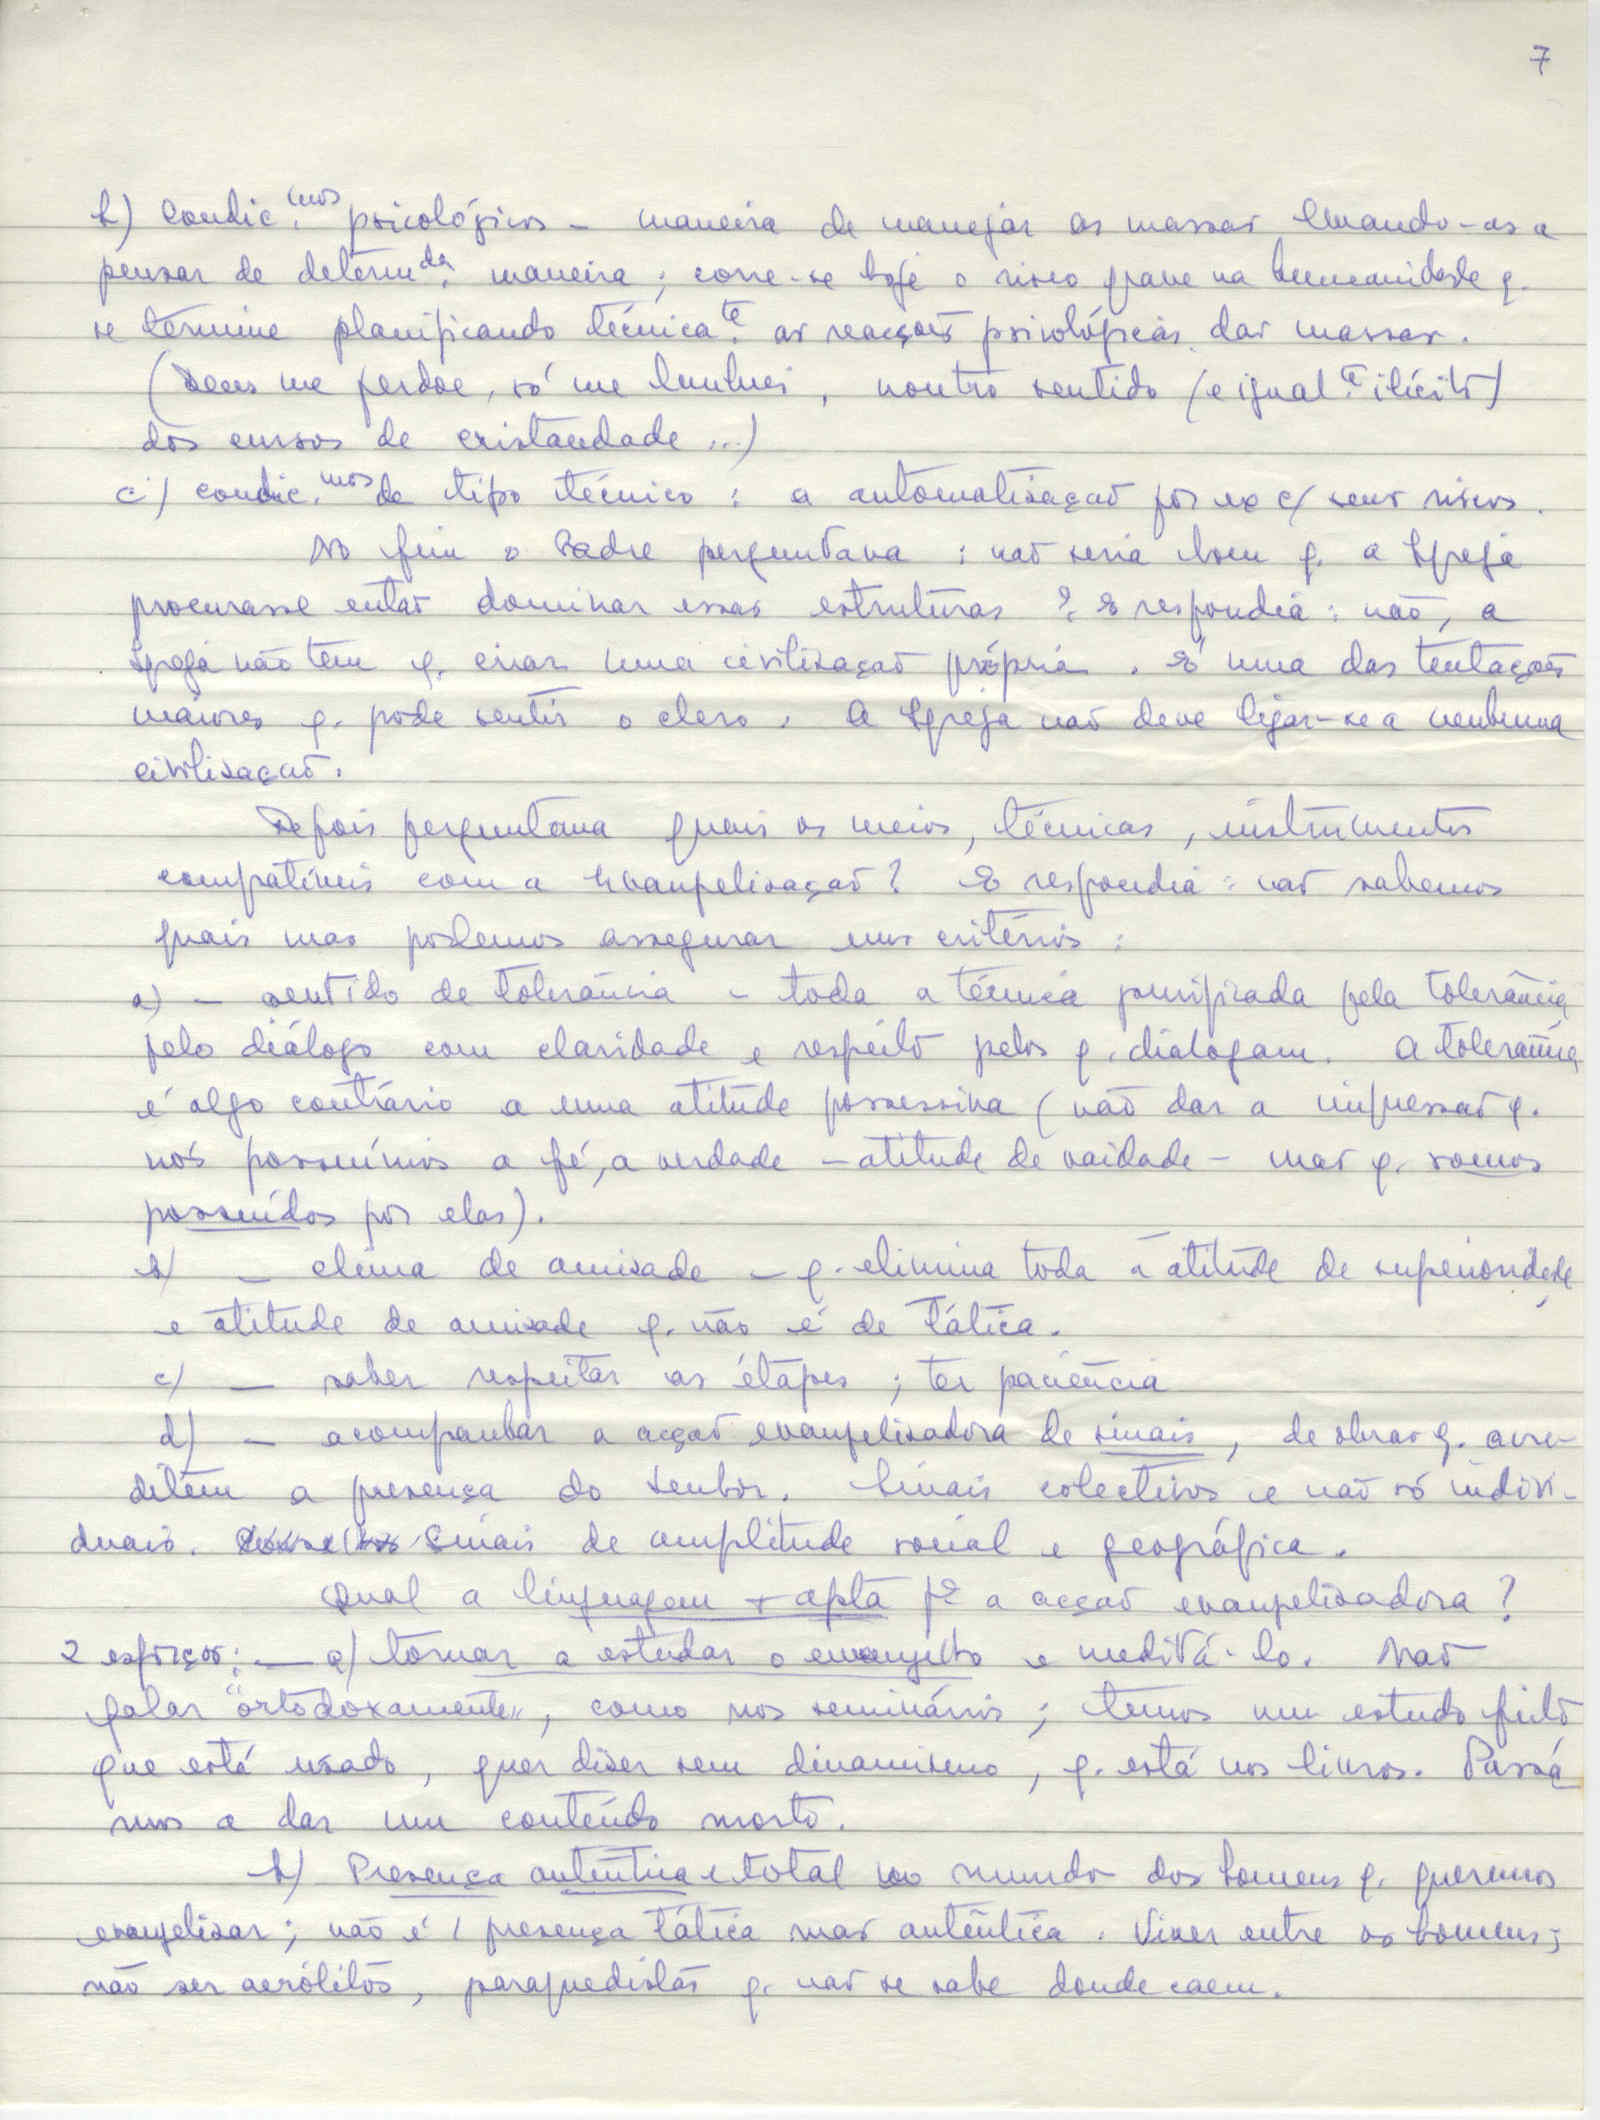 7
b) Condic.mos psicológicos - maneira de manejar as massas levando-as a
pensar de determ.da maneira; corre-se hoje o risco grave na humanidade q.
se termine planificando técnica.te as reacções psicológicas das massas.
(Deus me perdoe, só me lembrei, noutro sentido (e igual.te ilícito)
dos cursos de cristandade...)
c) condic.mos de tipo técnico: a automatisação por ex c/ seus riscos.
No fim o Padre perguntava: não seria bom q. a Igreja
procurasse entao dominar essas estruturas? E respondia: não, a
Igreja não tem q. criar uma civilisação própria. É uma das tentações
maiores q. pode sentir o clero. A Igreja não deve ligar-se a nenhuma
civilisação.
Depois perguntava quais os meios, técnicas, instrumentos
compatíveis com a Evangelisação? E respondia: não sabemos
quais mas podemos assegurar uns critérios:
a) - sentido de tolerância - toda a técnica purificada pela tolerância,
pelo diálogo com claridade e respeito pelos q. dialogam. A tolerância
é algo contrário a uma atitude possessiva (não dar a impressão q.
nós possuimos a fé, a verdade - atitude de vaidade - mas q. somos
possuídos por elas).
b) - clima de amisade - q. elimina toda a atitude de superioridade,
e atitude de amisade q. não é de tática.
c) - saber respeitar as étapes; ter paciência
d) - acompanhar a acção evangelisadora de sinais, de obras q. acre-
ditem a presença do Senhor. Sinais colectivos e não só indivi-
duais. Sinais de amplitude social e geográfica.
Qual a linguagem + apta pª a acção evangelisadora?
2 esforços: - a) tornar a estudar o evangelho e meditá-lo. Não
falar "ortodoxamente", como nos seminários; temos um estudo feito
que está usado, quer diser sem dinamismo, q. está nos livros. Passá
mos a dar um conteúdo morto.
b) Presença autêntica e total no mundo dos homens q. queremos
evangelisar; não é 1 presença tática mas autêntica. Viver entre os homens;
não ser aerólitos, paraquedistas q. não se sabe donde caem.